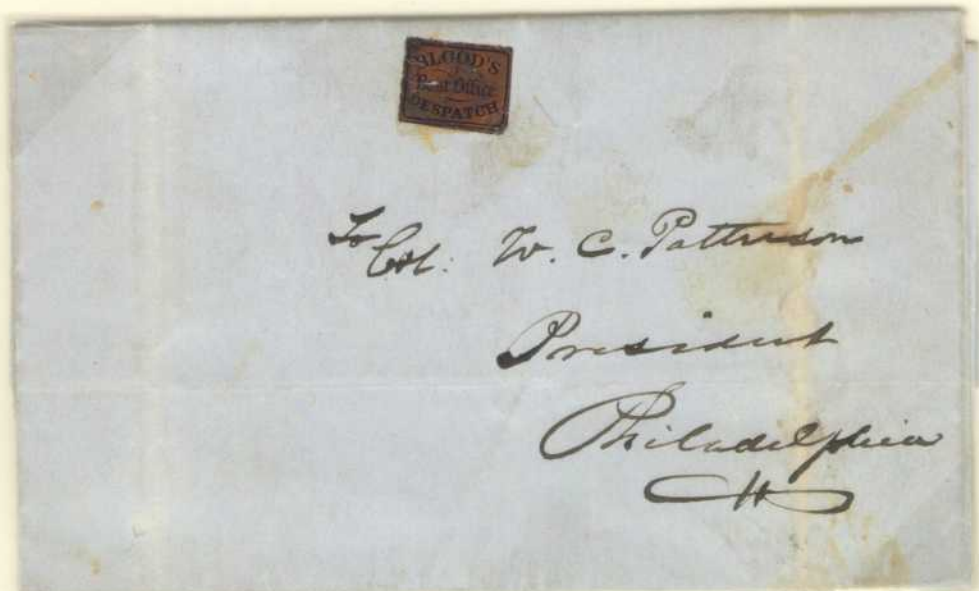 BLOOD'S
Post Office
DESPATCH
To
Col. W. C. Patterson
President
Philadelphia